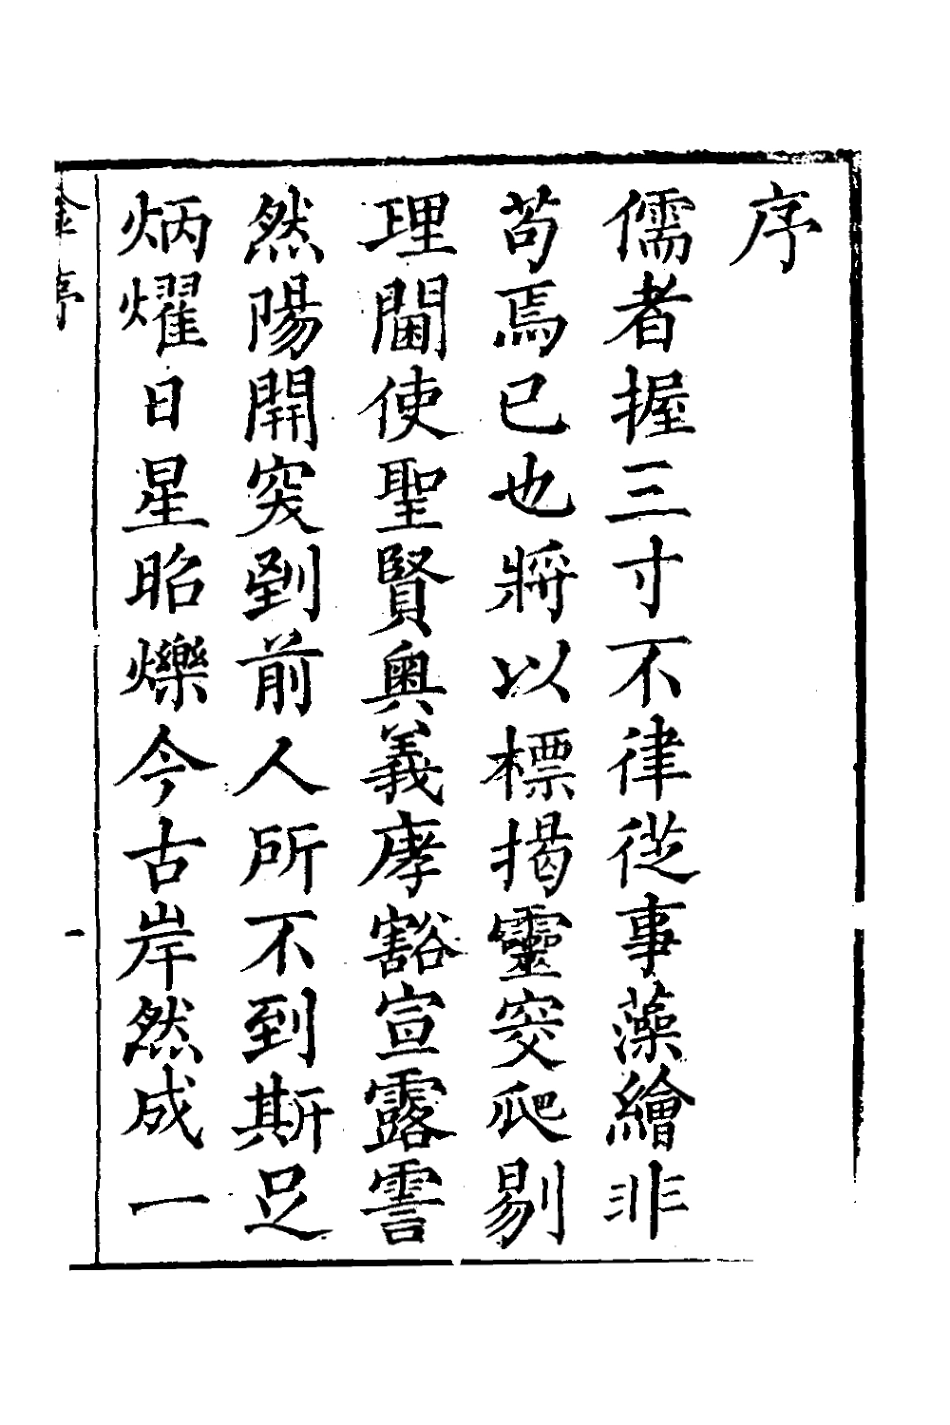 序
儒者握三寸不律從事藻繪非
苟焉已也將以標揭靈窔爬剔
理閫使聖賢奧義庨豁宣露霅
然陽開突到前人所不到斯足
炳燿日星昭爍今古岸然成一
序
一